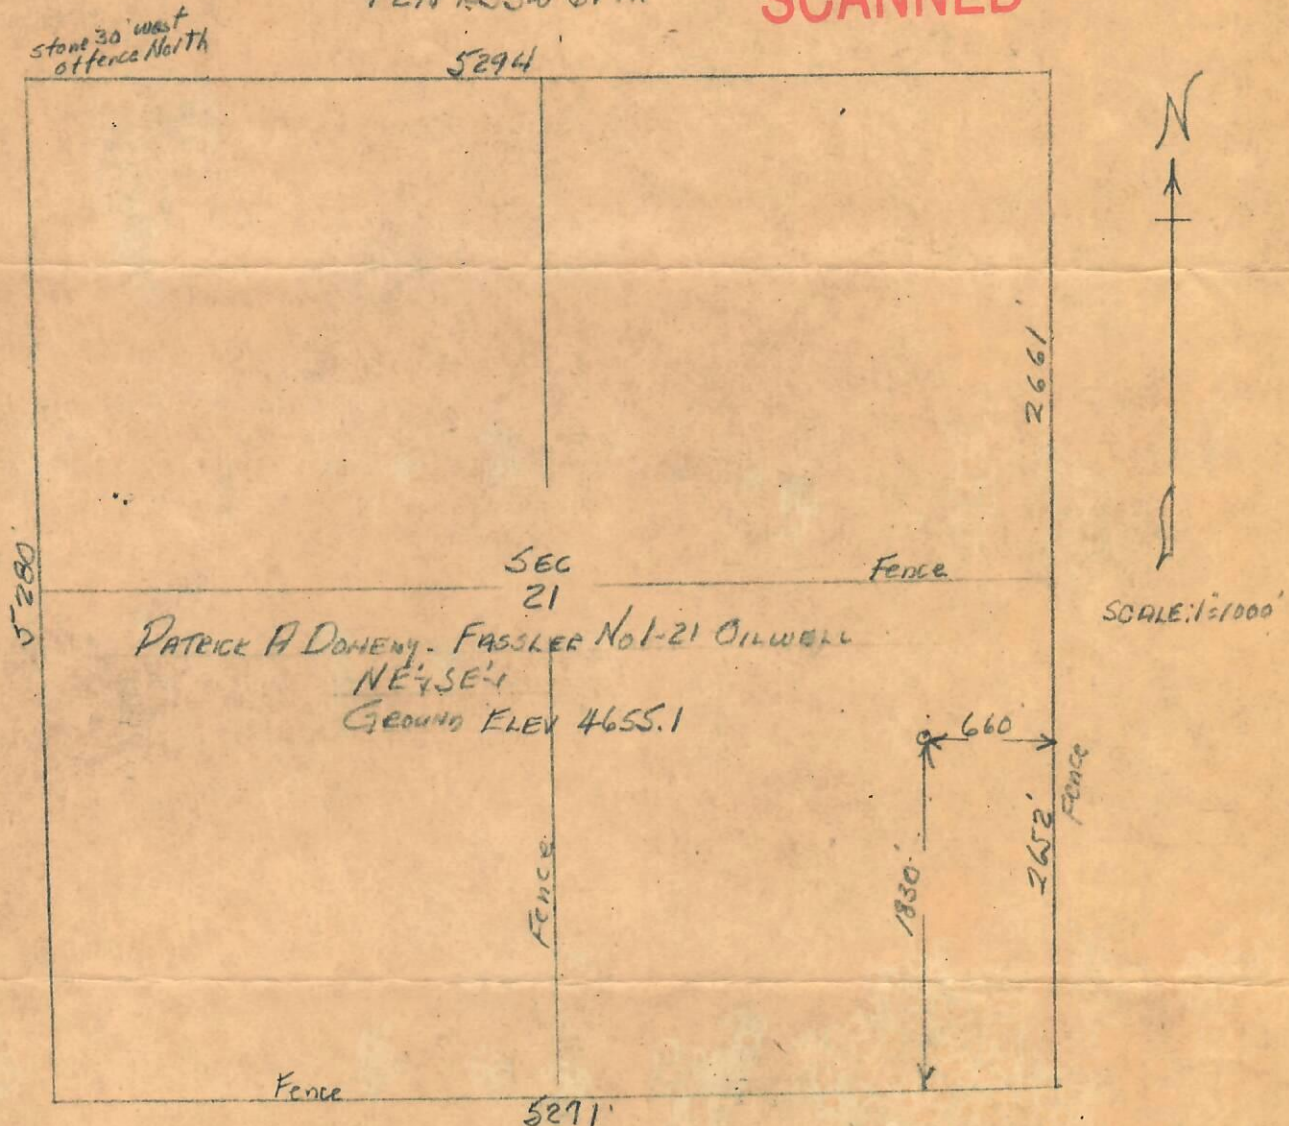 SCANNED
stone 30' west
of fence North
5294
N
2661'
5280'
SEC
21
Fence
SCALE: 1"=1000'
PATRICK A DOHENY - FASSLER No 1-21 OILWELL
NE¼SE¼
GROUND ELEV 4655.1
660'
Fence
2652'
1830'
Fence
Fence
5271'